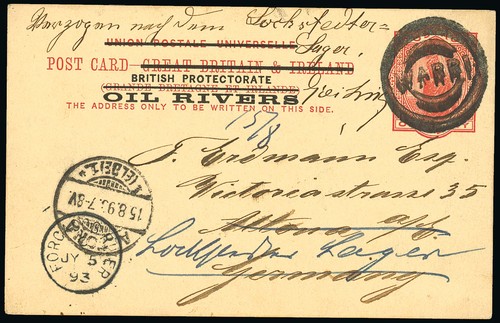 Verzogen nach dem Lockstedter=
Lager.
UNION POSTALE UNIVERSELLE
POST CARD GREAT BRITAIN & IRELAND
BRITISH PROTECTORATE
(GRANDE BRETAGNE ET IRLANDE)
OIL RIVERS
THE ADDRESS ONLY TO BE WRITTEN ON THIS SIDE.
WARRI
15/8
T. Erdmann Esq.
Victoriastrasse 35
Altona a/E
Lockstedter Lager
Germany
(ELBE) 1.
15.8.93. 7-8V.
FORCADOS RIVER
JY 5
93